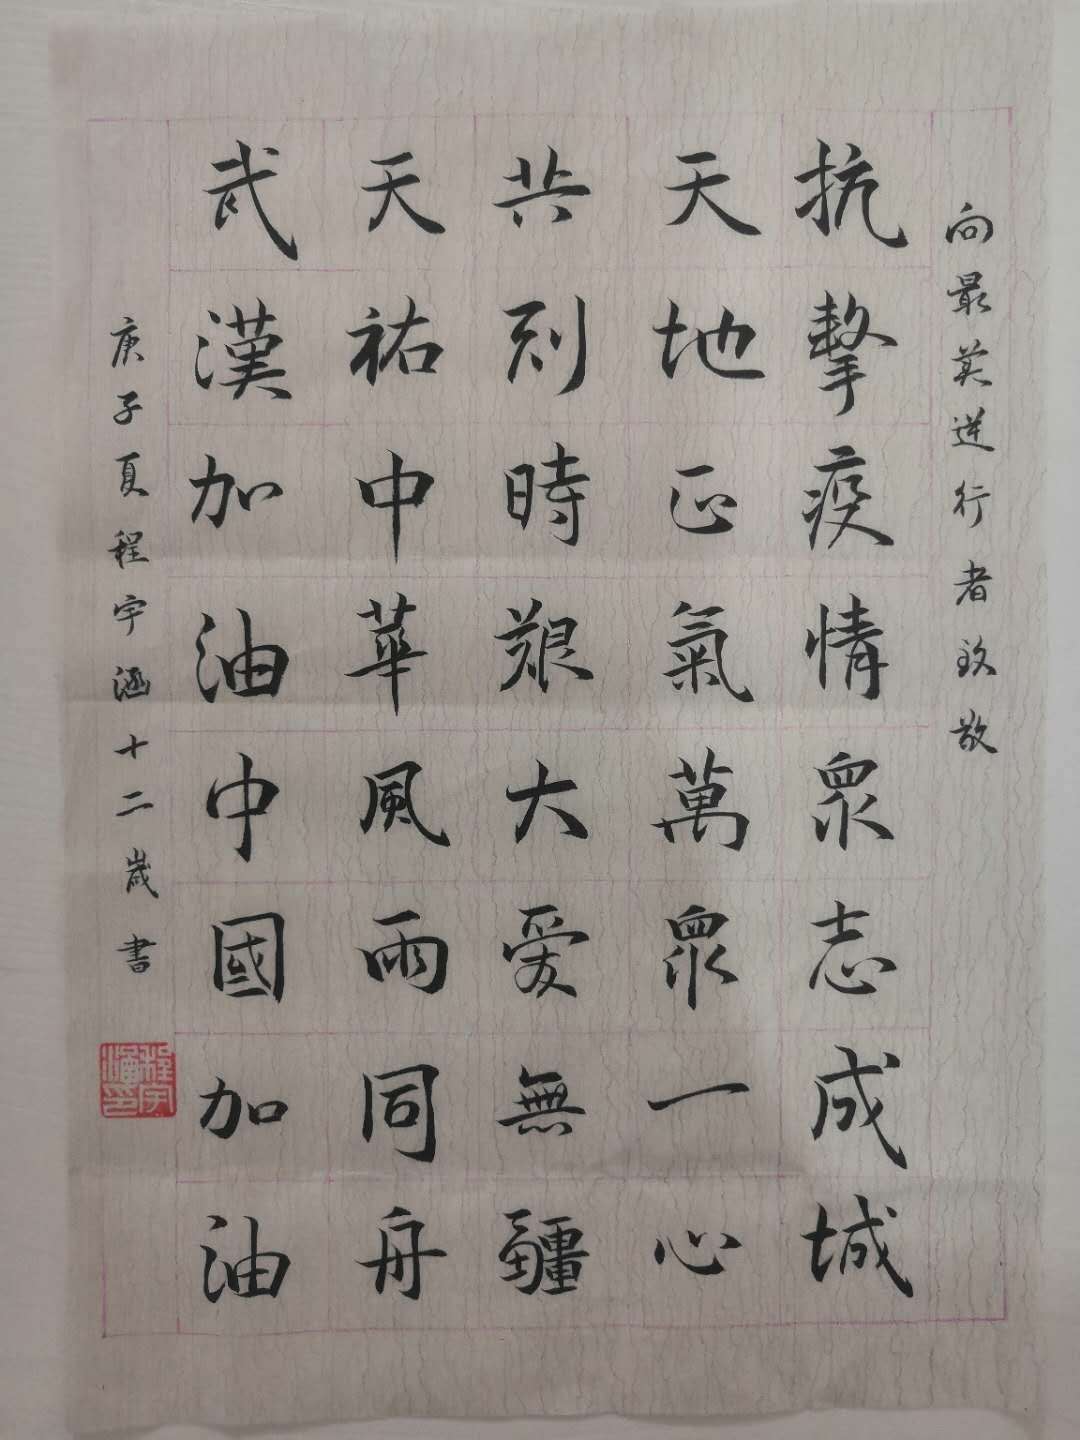 向最美逆行者致敬
抗擊疫情眾志成城
天地正氣萬眾一心
共刻時艱大愛無疆
天祐中華風雨同舟
武漢加油中國加油
庚子夏程宇涵十二歲書
程宇涵印